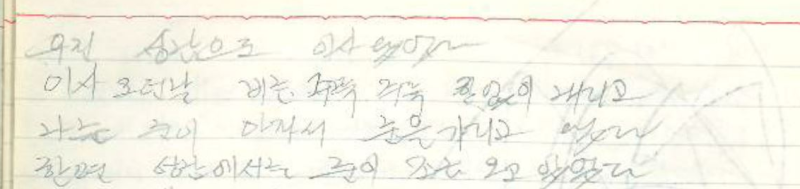 우린 성남으로 이사 왔었다
이사 오던날 비는 주룩 주룩 끝없이 내리고
나는 눈이 아파서 눈을 가리고 왔다
한편 성남에서는 눈이 오고 있었다